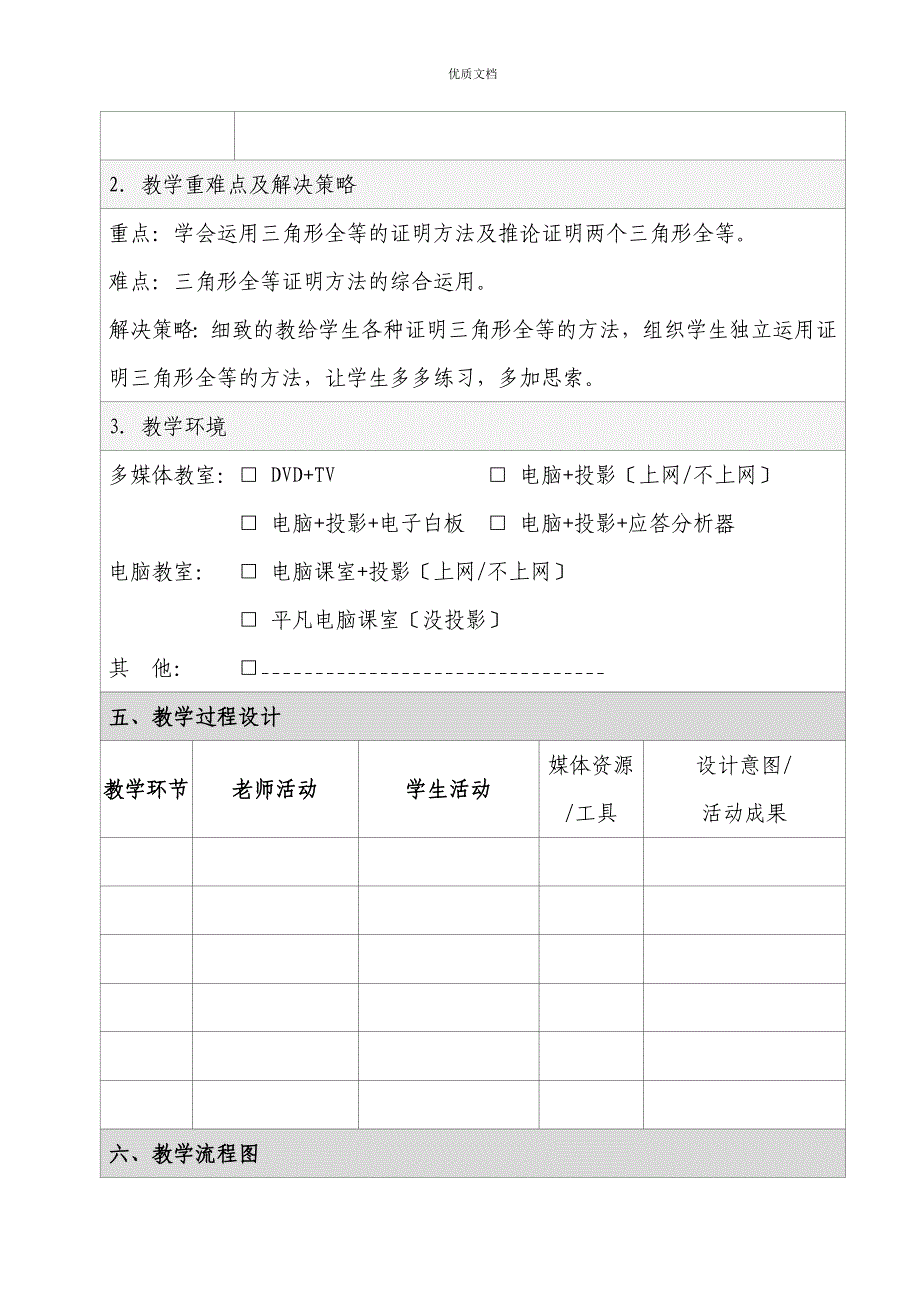 优质文档
2. 教学重难点及解决策略
重点: 学会运用三角形全等的证明方法及推论证明两个三角形全等。
难点: 三角形全等证明方法的综合运用。
解决策略: 细致的教给学生各种证明三角形全等的方法, 组织学生独立运用证
明三角形全等的方法, 让学生多多练习, 多加思索。
3. 教学环境
多媒体教室: □ DVD+TV □ 电脑+投影〔上网/不上网〕
□ 电脑+投影+电子白板 □ 电脑+投影+应答分析器
电脑教室: □ 电脑课室+投影〔上网/不上网〕
□ 平凡电脑课室〔没投影〕
其 他: □________________________________
五、教学过程设计
教学环节 老师活动 学生活动 媒体资源/工具 设计意图/活动成果
六、教学流程图